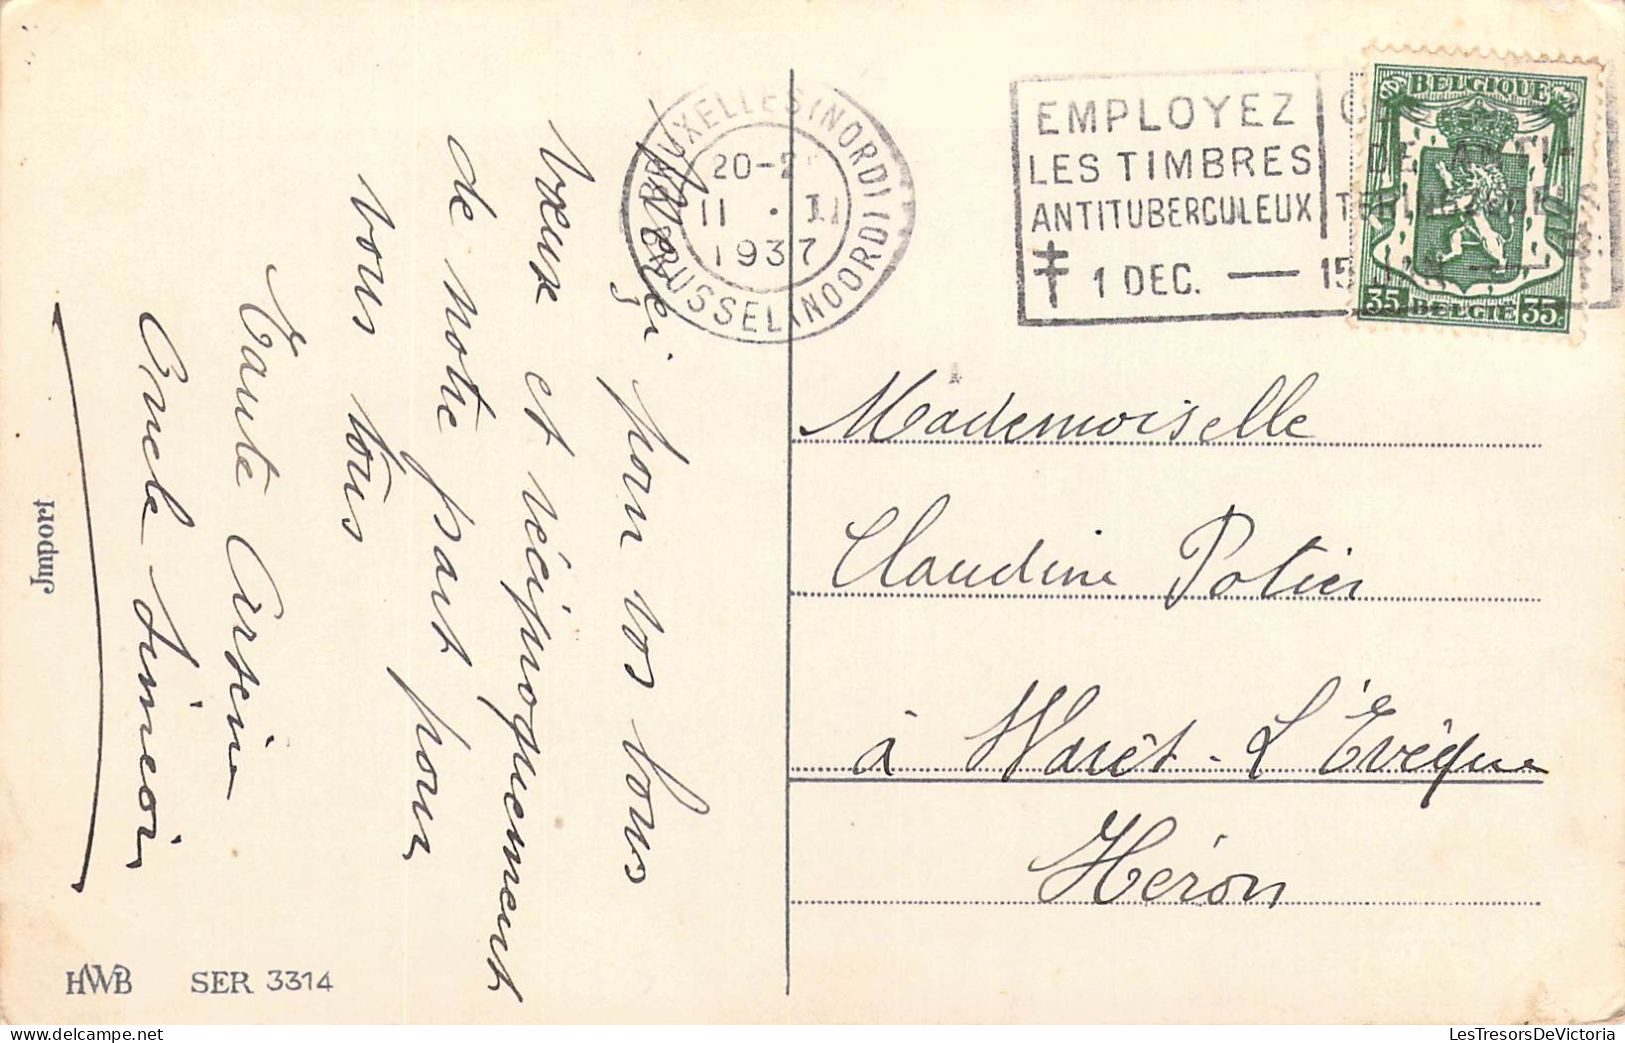 Merci pour vos bons
Vœux et réciproquement
de notre part pour
vous tous
Tante Arseine
Oncle Siméon
Jmport
HWB SER 3314
BRUXELLES (NORD)
BRUSSEL (NOORD)
20-2
11 . I
1937
EMPLOYEZ
LES TIMBRES
ANTITUBERCULEUX
1 DEC. — 15
BELGIQUE
35 BELGIE 35c
Mademoiselle
Claudine Potier
à Warêt-L'Évêque
Héron
LesTresorsDeVictoria
www.delcampe.net